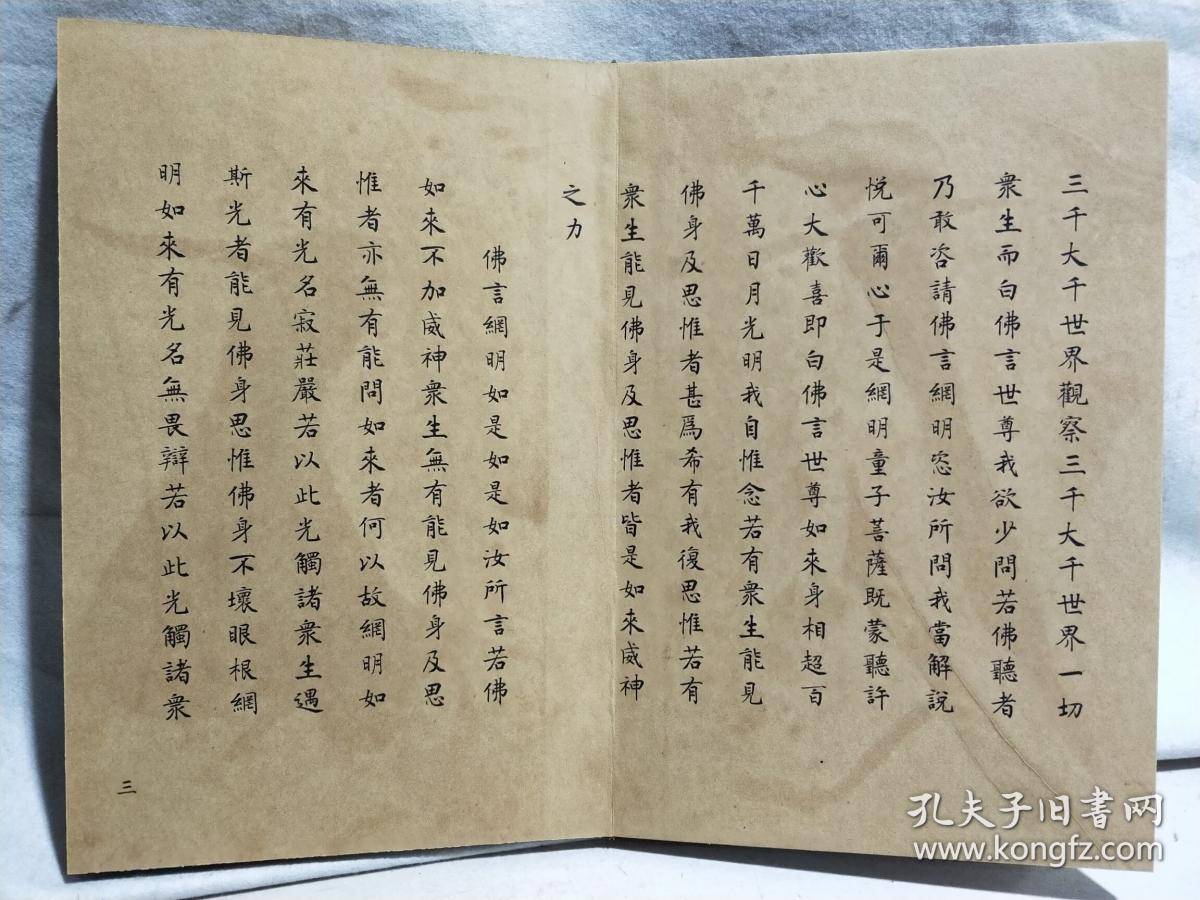 三千大千世界觀察三千大千世界一切
衆生而白佛言世尊我欲少問若佛聽者
乃敢咨請佛言網明恣汝所問我當解說
悅可爾心于是網明童子菩薩既蒙聽許
心大歡喜即白佛言世尊如來身相超百
千萬日月光明我自惟念若有衆生能見
佛身及思惟者甚爲希有我復思惟若有
衆生能見佛身及思惟者皆是如來威神
之力
佛言網明如是如是如汝所言若佛
如來不加威神衆生無有能見佛身及思
惟者亦無有能問如來者何以故網明如
來有光名寂莊嚴若以此光觸諸衆生遇
斯光者能見佛身思惟佛身不壞眼根網
明如來有光名無畏辯若以此光觸諸衆
三
孔夫子旧書网
www.kongfz.com